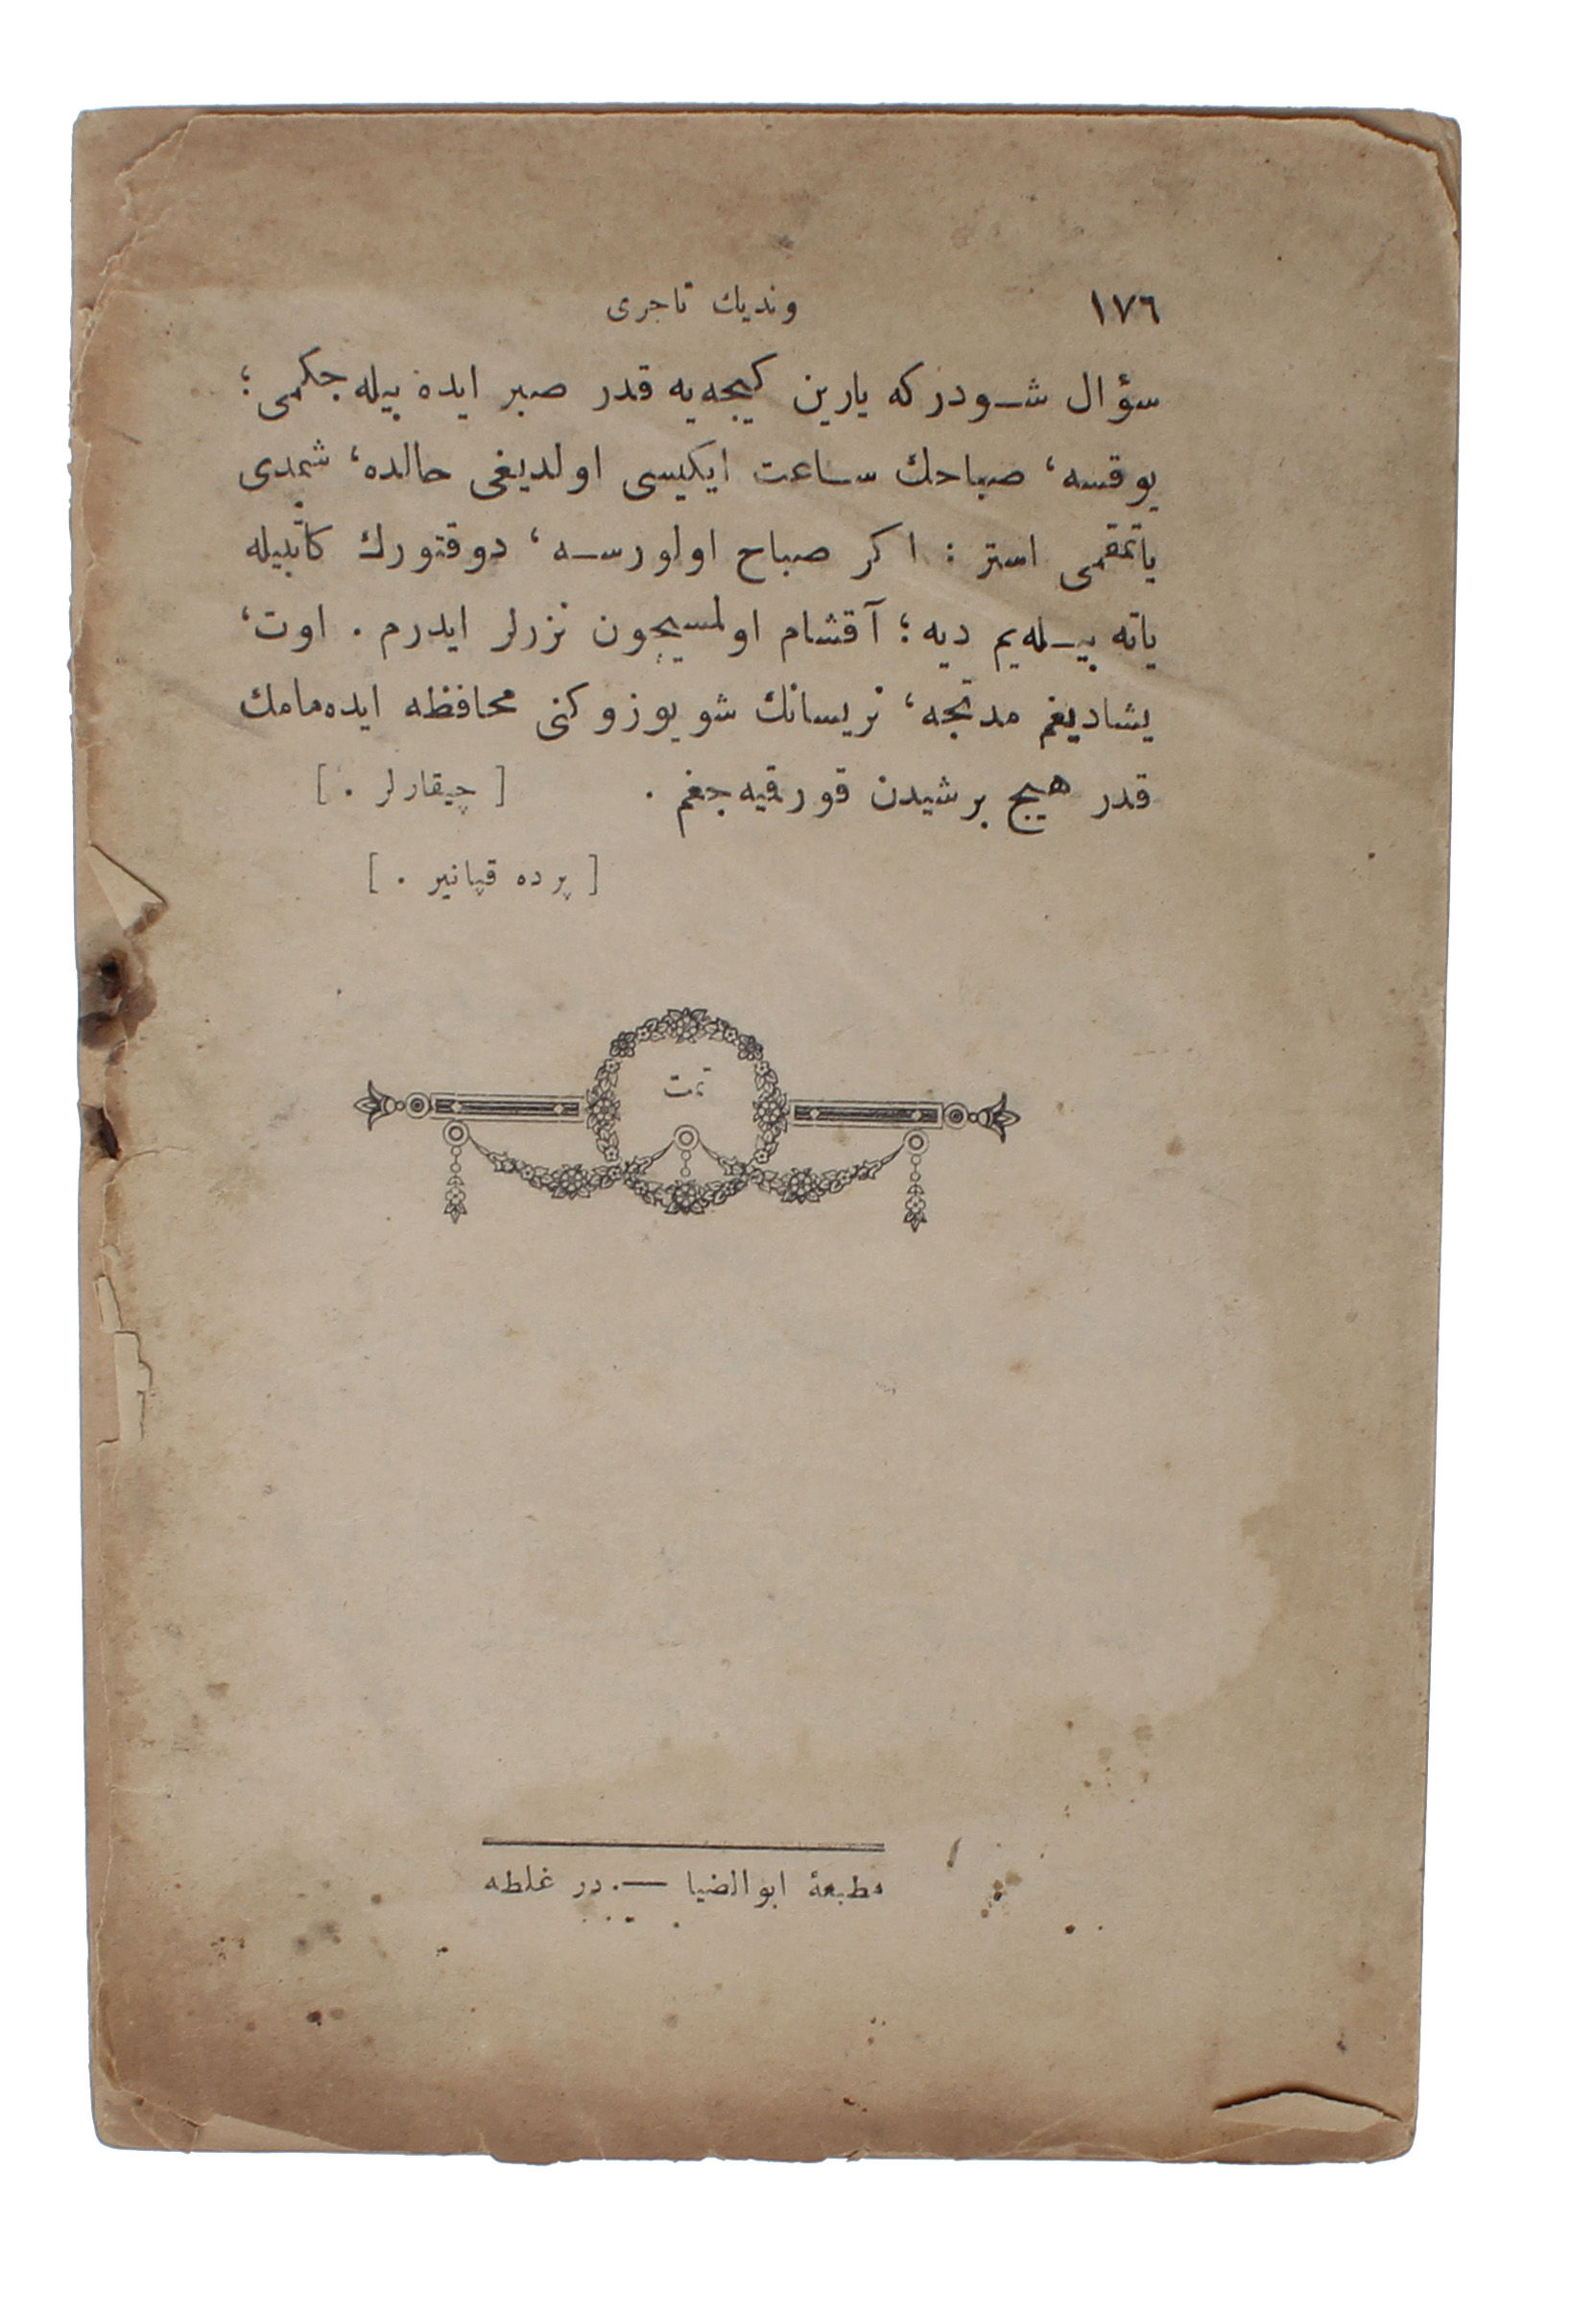 ١٧٦ ونديك تاجرى
سؤال شودركه يارين كيجه‌يه قدر صبر ايده بيله جكمى؛
يوقسه، صباحك ساعت ايكيسى اولديغى حالده، شمدى
ياتمقمى استر : اكر صباح اولورسه، دوقتورك كاتبيله
ياته بيله‌يم ديه؛ آقشام اولمسيچون نزرلر ايدرم . اوت،
يشاديغم مدتجه، نريسانك شو يوزوكنى محافظه ايده‌مامك
قدر هيچ برشيدن قورقيه جغم . [ چيقارلر . ]
[ پرده قپانير . ]
تمت
مطبعۀ ابوالضيا —. در غلطه